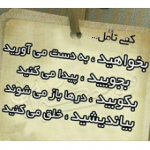 کمی تأمل...
بخواهید ، به دست می آورید
بجویید ، پیدا می کنید
بکوبید ، درها باز می شوند
بیاندیشید ، خلق می کنید